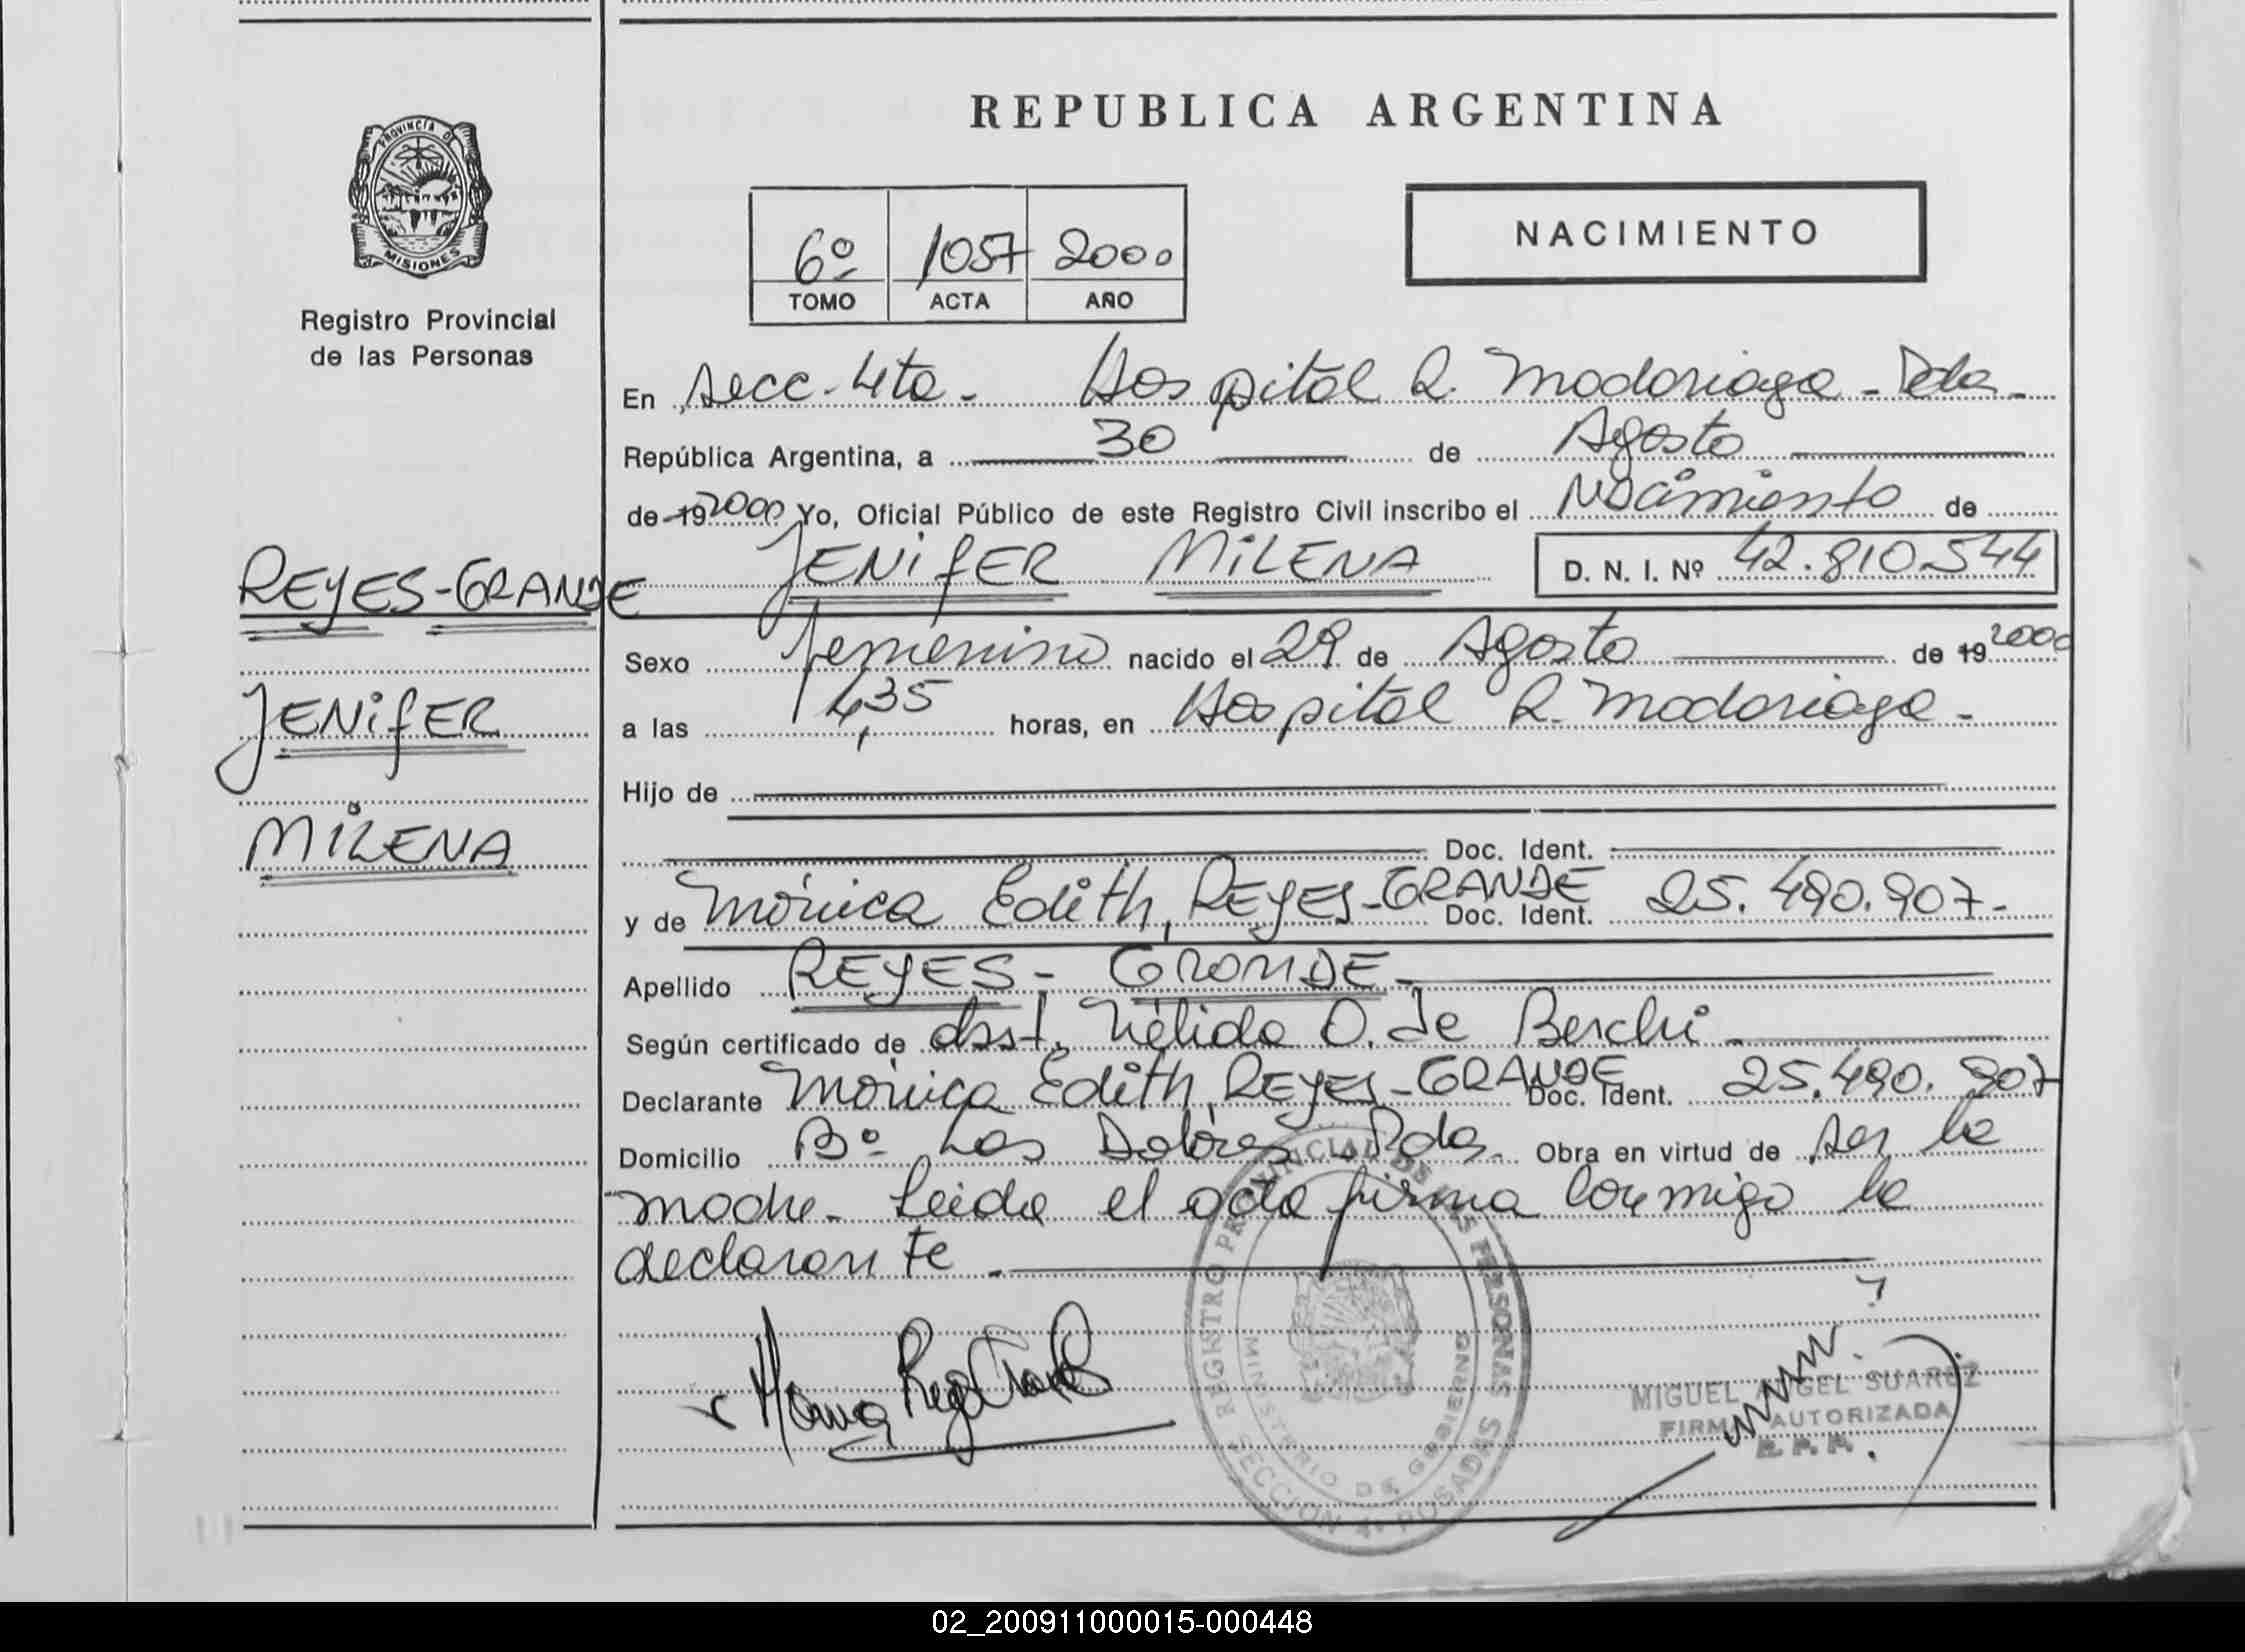 REPUBLICA ARGENTINA
PROVINCIA DE
MISIONES
Registro Provincial
de las Personas
6º 1057 2000
TOMO ACTA AÑO
NACIMIENTO
En Secc. 4ta. Hospital R. Madariaga - Pdas.
República Argentina, a 30 de Agosto
de 19 2000 Yo, Oficial Público de este Registro Civil inscribo el Nacimiento de
REYES-GRANDE
JENifER MiLENA D. N. I. Nº 42.810.544
Sexo femenino nacido el 29 de Agosto de 19 2000
JENifER
a las 4,35 horas, en Hospital R. Madariaga.
Hijo de
MiLENA
Doc. Ident.
y de Mónica Edith, REYES-GRANDE Doc. Ident. 25.490.907.
Apellido REYES - GRANDE
Según certificado de obst. Nélida O. de Berchi
Declarante Mónica Edith, REYES-GRANDE Doc. Ident. 25.490.907
Domicilio Bº Los Dolores Pdas. Obra en virtud de ser la
madre. Leida el acta firma conmigo la
declarante.
REGISTRO PROVINCIAL DE LAS PERSONAS
MINISTERIO DE GOBIERNO
SECCION 4ª POSADAS
MIGUEL ANGEL SUAREZ
FIRMA AUTORIZADA
R. P. P.
02_200911000015-000448